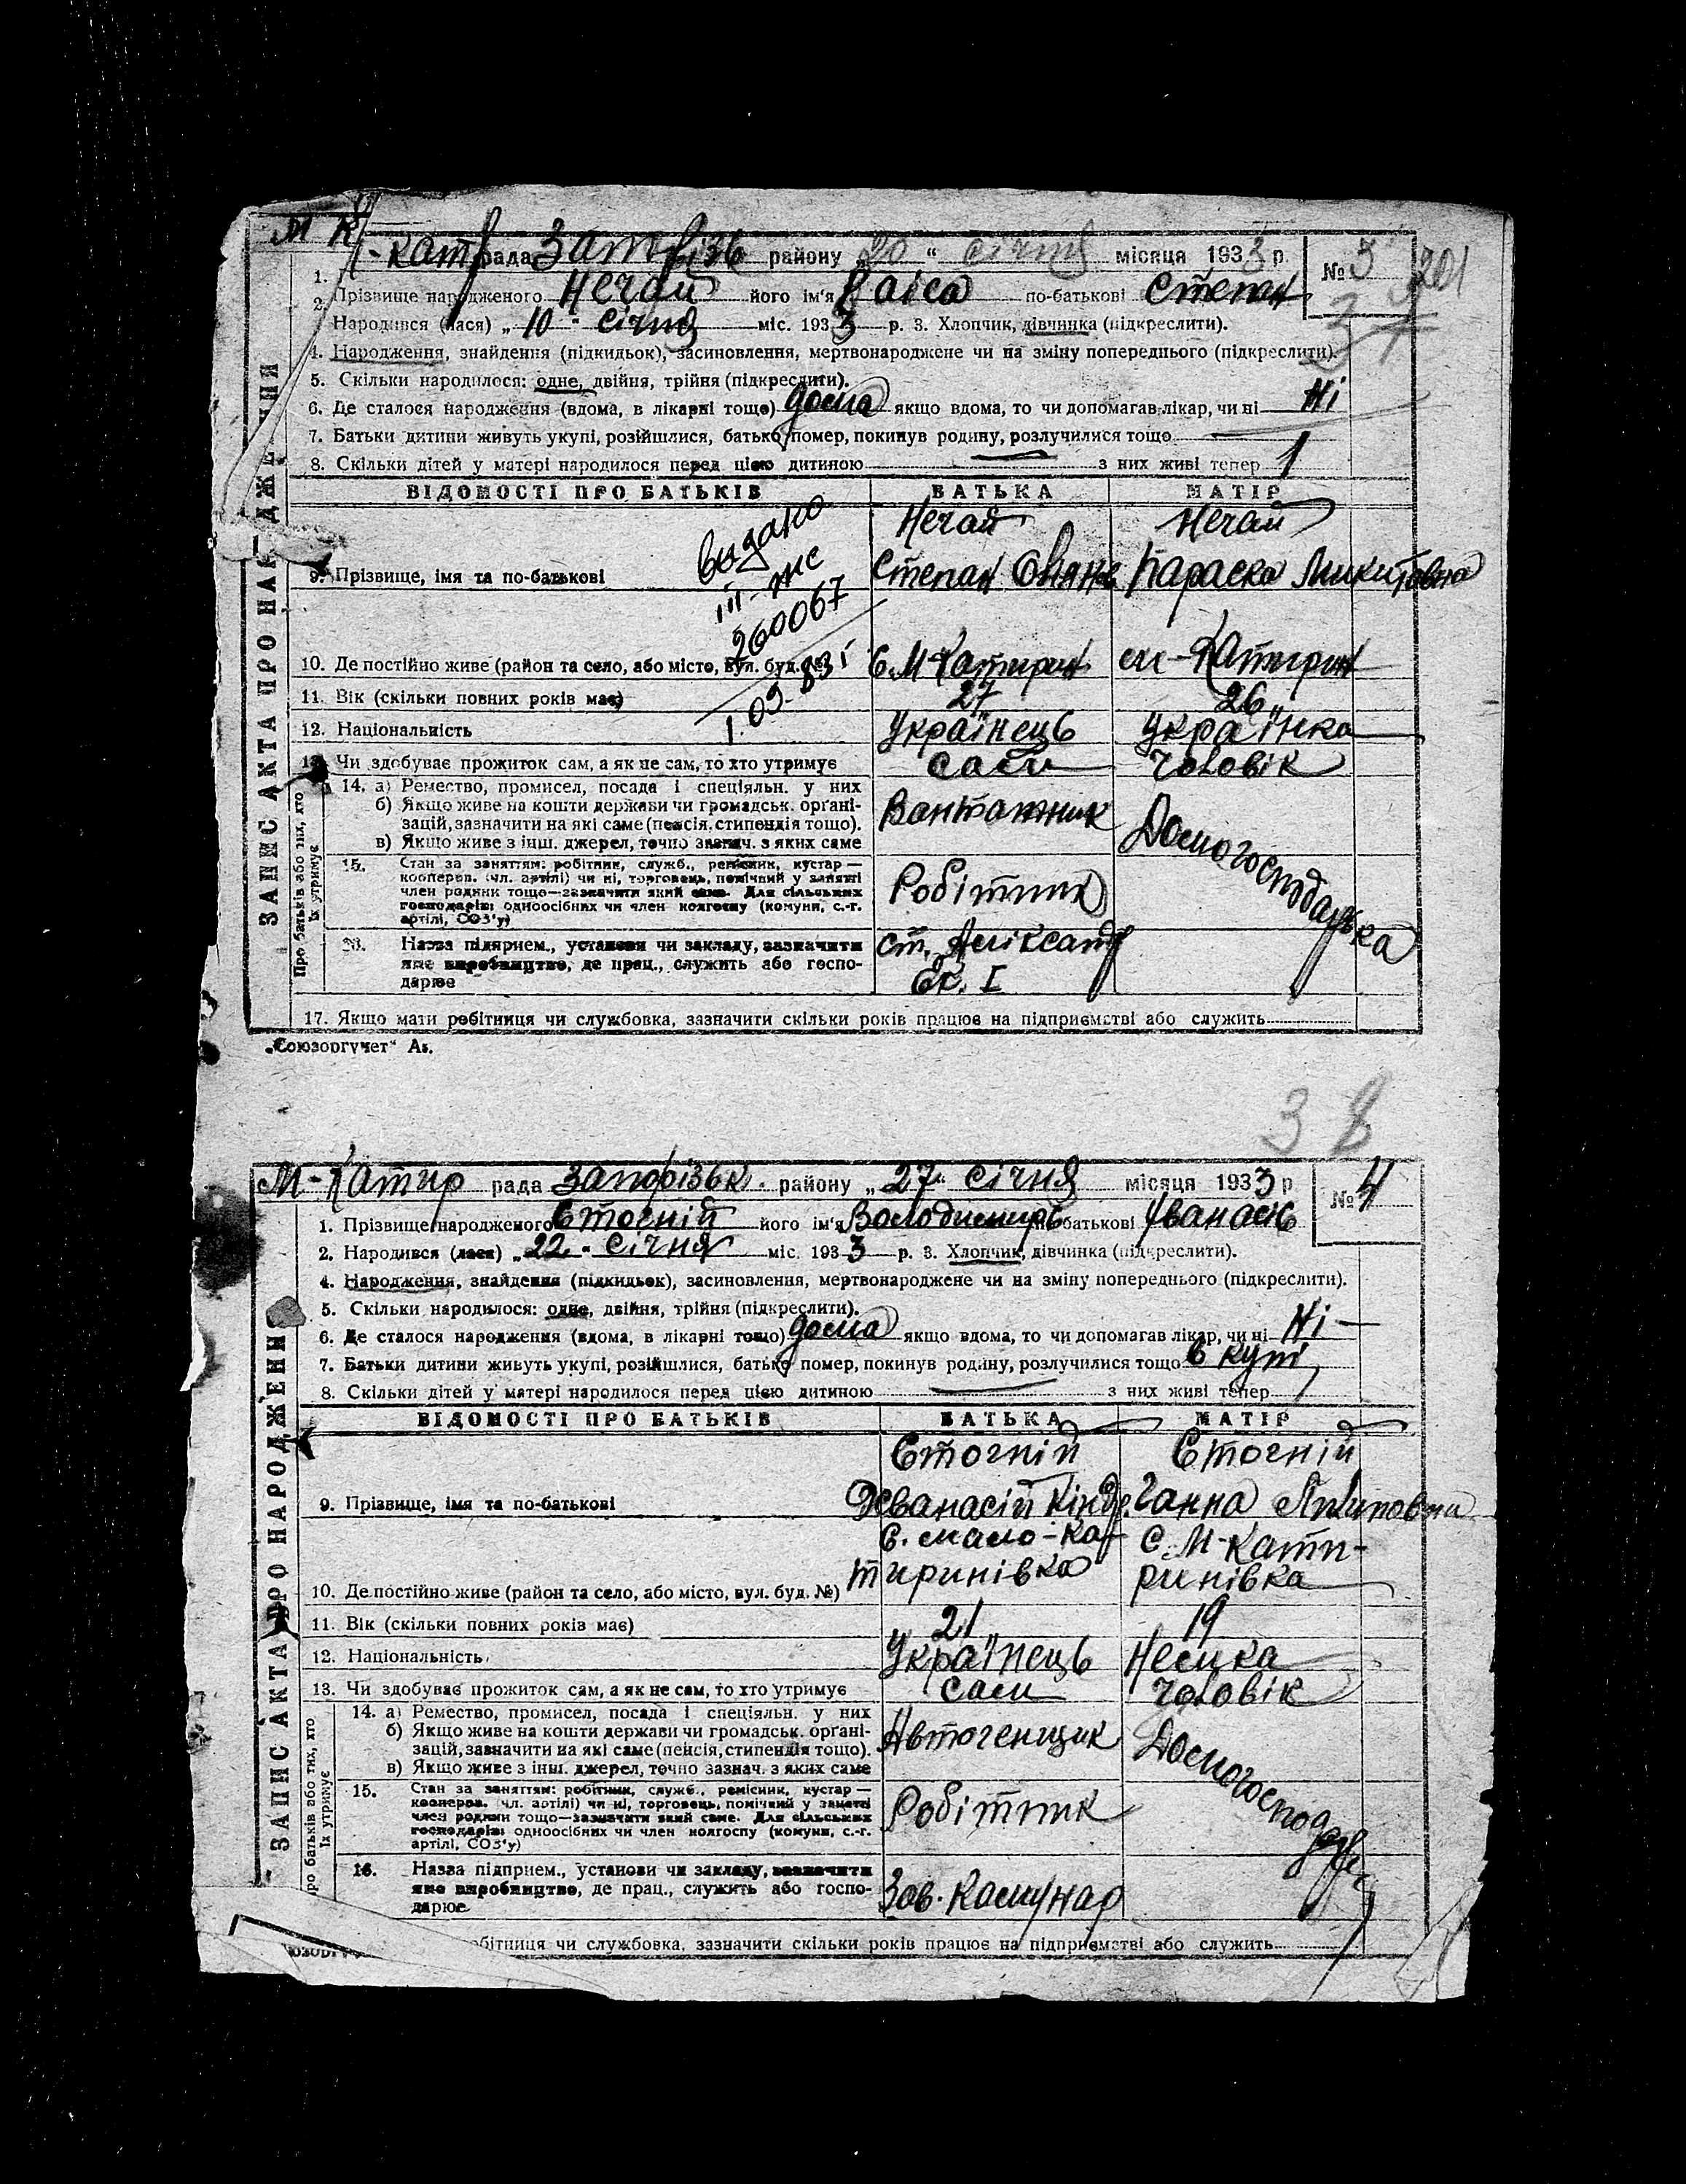 М К
-Кат рада Запорізь району „20“ січня місяця 1933 р. № 3 201
37
1. Прізвище народженого Нечай його ім'я Раіса по-батькові Степан
2. Народився (лася) „10“ січня міс. 1933 р. 3. Хлопчик, дівчинка (підкреслити).
4. Народження, знайдення (підкидьок), засиновлення, мертвонароджене чи на зміну попереднього (підкреслити).
5. Скільки народилося: одне, двійня, трійня (підкреслити).
6. Де сталося народження (вдома, в лікарні тощо) дома якщо вдома, то чи допомагав лікар, чи ні Ні
7. Батьки дитини живуть укупі, розійшлися, батько помер, покинув родину, розлучилися тощо
8. Скільки дітей у матері народилося перед цією дитиною — з них живі тепер 1
ЗАПИС АКТА ПРО НАРОДЖЕННЯ
ВІДОМОСТІ ПРО БАТЬКІВ БАТЬКА МАТІР
видано
III-ЖС
260067
1.09.83
Нечай Нечай
9. Прізвище, імя та по-батькові Степан Параска Микитовна
10. Де постійно живе (район та село, або місто, вул. буд. №) с. М-Катирин м-Катирин
11. Вік (скільки повних років має) 27 26
12. Національність Українець Українка
13. Чи здобуває прожиток сам, а як не сам, то хто утримує сам чоловік
Про батьків або тих, хто їх утримує
14. а) Ремество, промисел, посада і спеціяльн. у них
б) Якщо живе на кошти держави чи громадськ. органі-
зацій, зазначити на які саме (пенсія, стипендія тощо).
в) Якщо живе з інш. джерел, точно зазнач. з яких саме
Вантажник Домогосподарька
15. Стан за заняттям: робітник, служб., ремісник, кустар —
кооперов. (чл. артілі) чи ні, торговець, помічний у занятті
член родини тощо—зазначити який саме. Для сільських
господарів: одноосібних чи член колгоспу (комуни, с.-г.
артілі, СОЗ'у)
Робітник
16. Назва підприєм., установи чи закладу, зазначити
яке виробництво, де прац., служить або госпо-
дарює
ст. Аліксанд
Ек. I
17. Якщо мати робітниця чи службовка, зазначити скільки років працює на підприємстві або служить
„Союзоргучет“
38
М-Катир рада Запорізьк. району „27“ січня місяця 1933 р № 4
1. Прізвище народженого Стогній його ім'я Володимирь по-батькові Уванась
2. Народився (лася) „22“ січня міс. 1933 р. 3. Хлопчик, дівчинка (підкреслити).
4. Народження, знайдення (підкидьок), засиновлення, мертвонароджене чи на зміну попереднього (підкреслити).
5. Скільки народилося: одне, двійня, трійня (підкреслити).
6. Де сталося народження (вдома, в лікарні тощо) дома якщо вдома, то чи допомагав лікар, чи ні Ні
7. Батьки дитини живуть укупі, розійшлися, батько помер, покинув родину, розлучилися тощо в купі
8. Скільки дітей у матері народилося перед цією дитиною — з них живі тепер
ЗАПИС АКТА ПРО НАРОДЖЕННЯ
ВІДОМОСТІ ПРО БАТЬКІВ БАТЬКА МАТІР
Стогній Стогній
9. Прізвище, імя та по-батькові Ганна
с. мало-Ка- С. М-Кати-
10. Де постійно живе (район та село, або місто, вул. буд. №) тиринівка ринівка
11. Вік (скільки повних років має) 21 19
12. Національність Українець Немка
13. Чи здобуває прожиток сам, а як не сам, то хто утримує сам чоловік
Про батьків або тих, хто їх утримує
14. а) Ремество, промисел, посада і спеціяльн. у них
б) Якщо живе на кошти держави чи громадськ. органі-
зацій, зазначити на які саме (пенсія, стипендія тощо).
в) Якщо живе з інш. джерел, точно зазнач. з яких саме
Автогенщик
15. Стан за заняттям: робітник, служб., ремісник, кустар —
кооперов. чл. артілі) чи ні, торговець, помічний у занятті
член родини тощо—зазначити який саме. Для сільських
господарів: одноосібних чи член колгоспу (комуни, с.-г.
артілі, СОЗ'у)
Робітник
16. Назва підприєм., установи чи закладу, зазначити
яке виробництво, де прац., служить або госпо-
дарює
Зав. Комунар
робітниця чи службовка, зазначити скільки років працює на підприємстві або служить